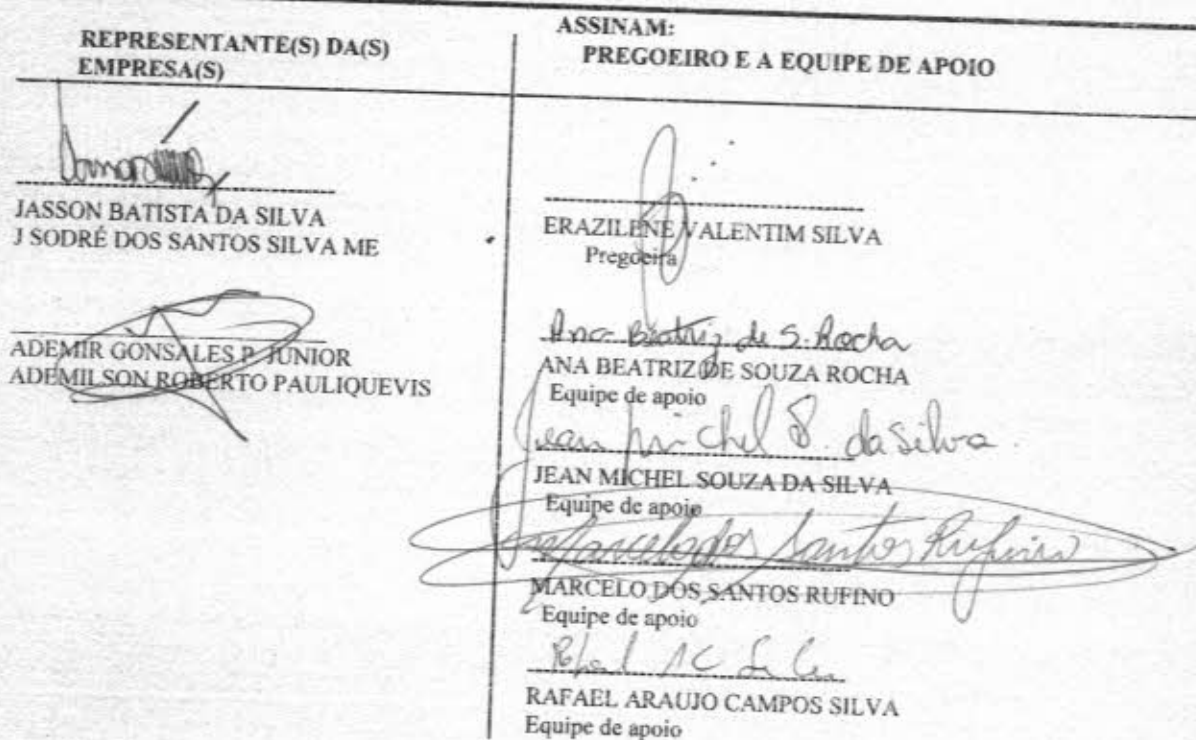 REPRESENTANTE(S) DA(S)
EMPRESA(S)
JASSON BATISTA DA SILVA
J SODRÉ DOS SANTOS SILVA ME
ADEMIR GONSALES P. JUNIOR
ADEMILSON ROBERTO PAULIQUEVIS
ASSINAM:
PREGOEIRO E A EQUIPE DE APOIO
ERAZILENE VALENTIM SILVA
Pregoeira
Ana Beatriz de S. Rocha
ANA BEATRIZ DE SOUZA ROCHA
Equipe de apoio
Jean Michel S. da Silva
JEAN MICHEL SOUZA DA SILVA
Equipe de apoio
Marcelo dos Santos Rufino
MARCELO DOS SANTOS RUFINO
Equipe de apoio
RAFAEL ARAUJO CAMPOS SILVA
Equipe de apoio